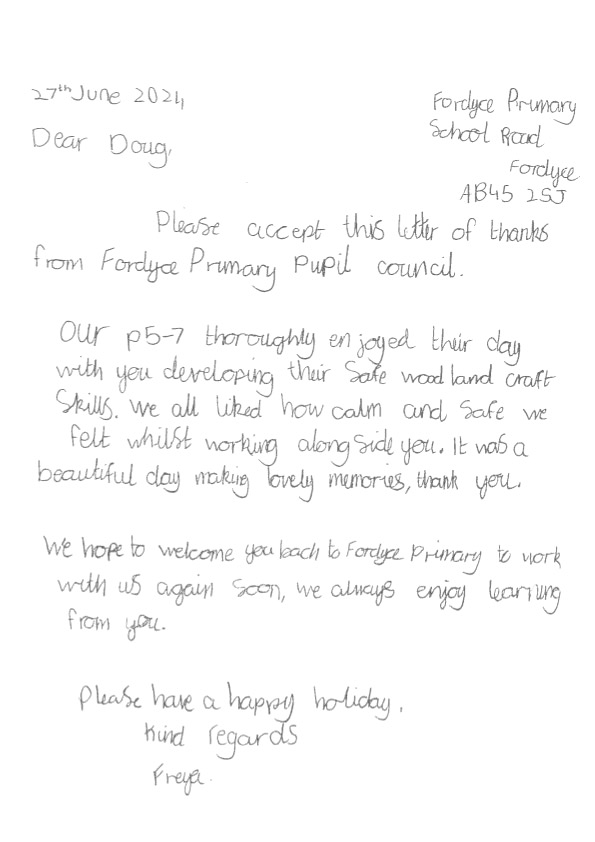 27th June 2024
Fordyce Primary
School Road
Fordyce
AB45 2SJ
Dear Doug,
Please accept this letter of thanks
from Fordyce Primary Pupil council.
Our p5-7 thoroughly enjoyed their day
with you developing their safe woodland craft
skills. We all liked how calm and safe we
felt whilst working alongside you. It was a
beautiful day making lovely memories, thank you.
We hope to welcome you back to Fordyce Primary to work
with us again soon, we always enjoy learning
from you.
Please have a happy holiday.
Kind regards
Freya.